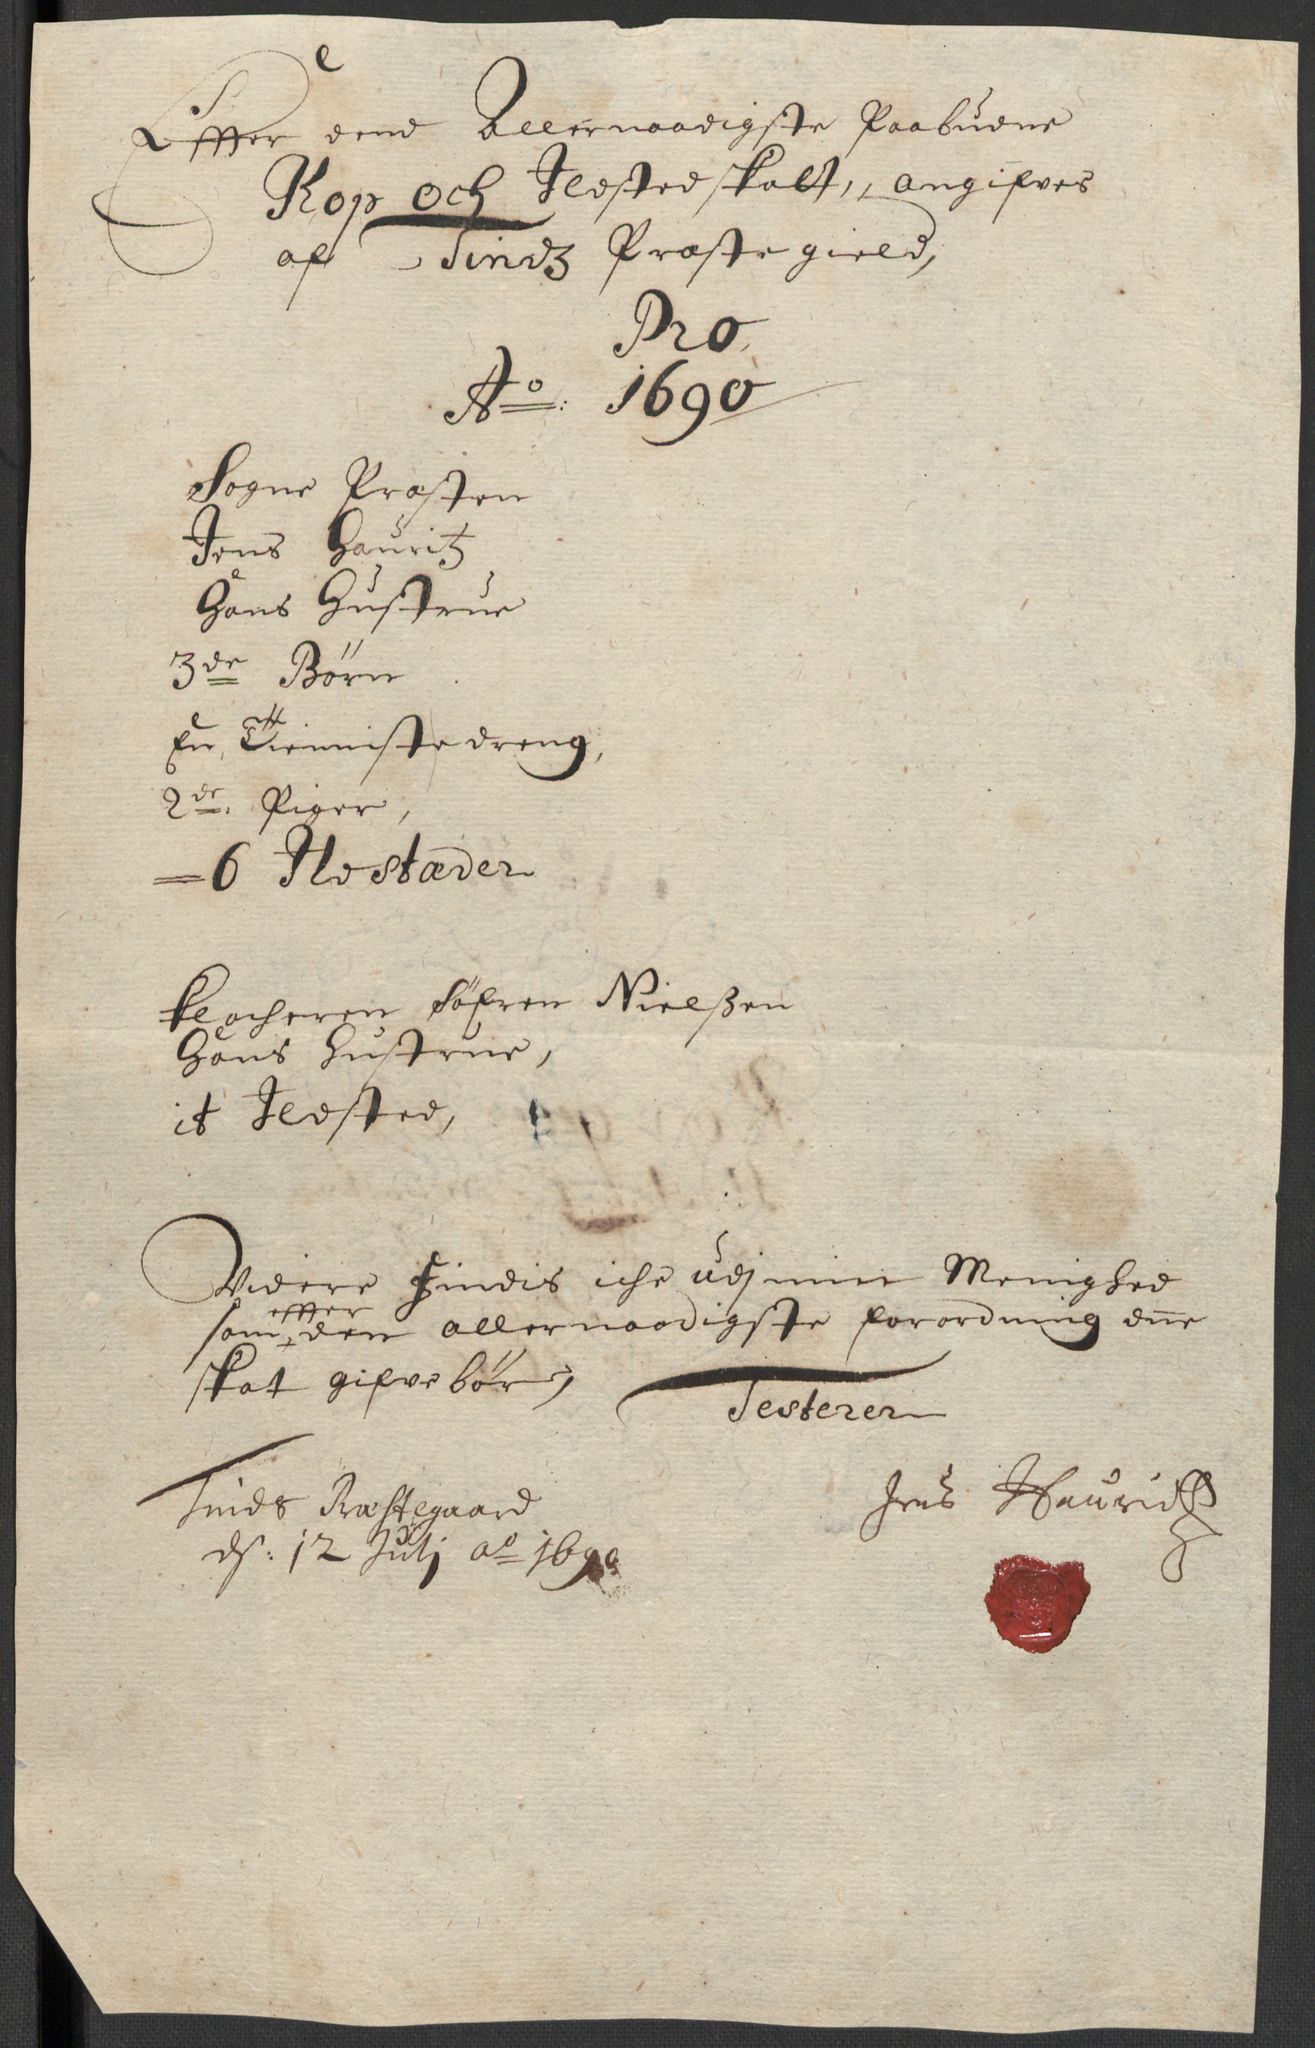 Effter dend Allernaadigste Paabudne
Kop och Ildsted skatt, angifves
af Tindz Præstegield,
Pro
Ao: 1690
Sogne Præsten
Jens Hauritz
Hans Hustrue
3de Børn
En Tienniste dreng,
2de Piger,
6 Ildstæder
Klocheren Søfren Nielßen
Hans Hustrue,
it Ildsted,
Videre Findis iche udj min Menighed
som effter den allernaadigste forordning dne
skat gifve bør,
Testerer
Tinds Præstegaard
ds: 12 Julj ao 1690
Jens Hauridtz